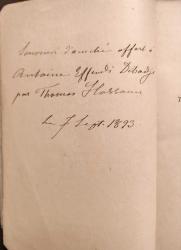 Souvenir d'amitié offert à
Antoine Effendi
par Thomas
le 7 Sept. 1893